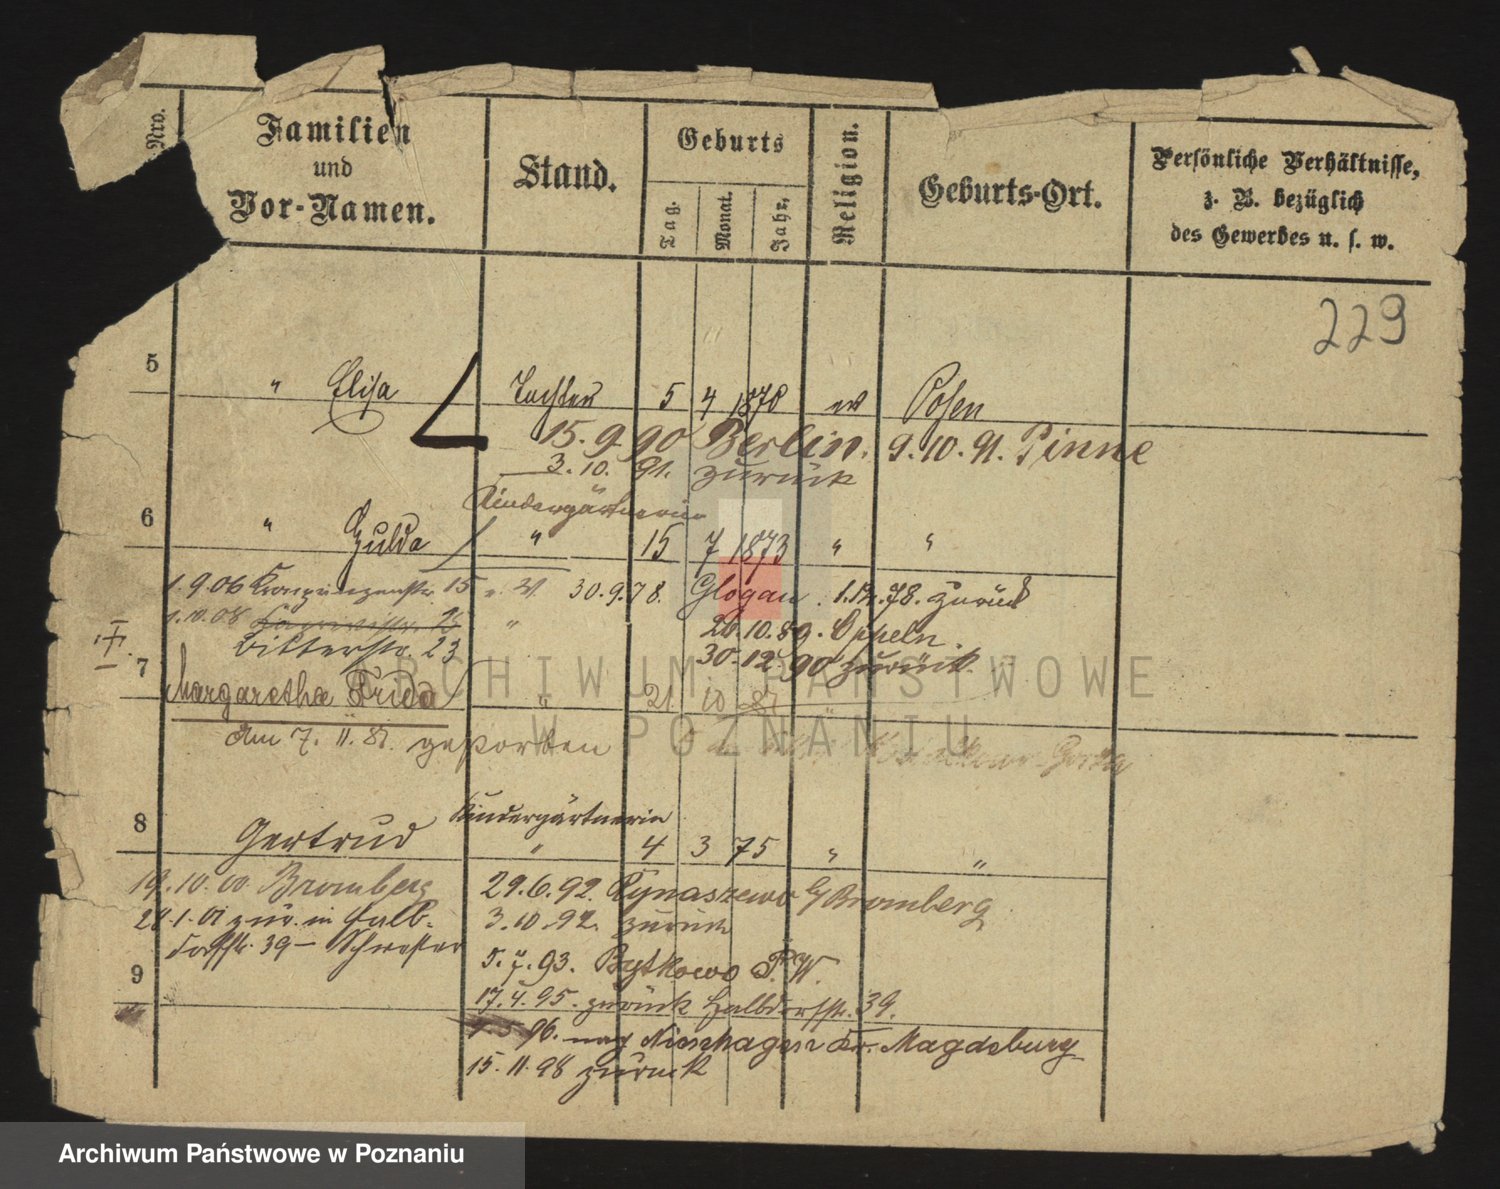 Nro.
Familien
und
Vor-Namen.
Stand.
Geburts
Tag.
Monat.
Jahr.
Religion.
Geburts-Ort.
Persönliche Verhältnisse,
z. B. bezüglich
des Gewerbes u. s. w.
229
5 " Elisa Tochter 5 4 1870 ev Posen
15.9.90 Berlin. 9.10.91. Pinne
3.10. 91. zurück
Kindergärtnerin
6 " Hulda " 15 7 1873 " "
1.9.06 Kronprinzenstr. 15 30.9.78. Glogau. 78. zurück
1.10.08 "
20.10.89. Oppeln
Bitterstr. 23 30.12.90 zurück.
7 Margaretha Frida " 21 10
am 7. 11. 81. gestorben
Kindergärtnerin
8 Gertrud " 4 3 75 " "
19.10.00 Bromberg 29.6.92. Rynaszewo b/ Bromberg
28.1.01 zur. in Halb- 3.10.92. zurück
dorfstr. 39 – Schwester
5.7.93. Bytkowo P. W.
9
17.4.95. zurück Halbdorfstr. 39.
96. nach Nienhagen Kr. Magdeburg
15.11.98 zurück
ARCHIWUM PAŃSTWOWE
W POZNANIU
Archiwum Państwowe w Poznaniu